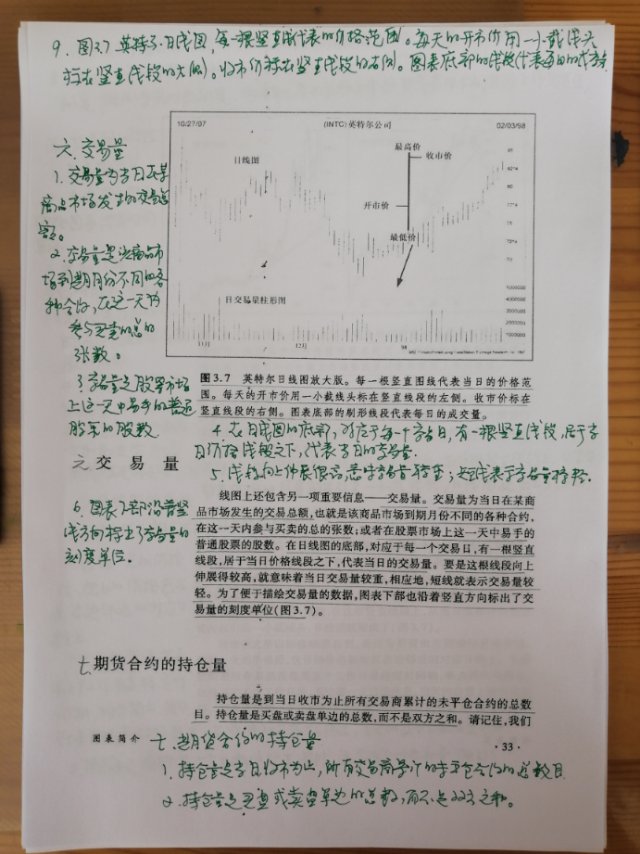 9、图3.7 英特尔日线图,每一根竖直线代表的价格范围。每天的开市价用一小截线头
标在竖直线段的左侧。收市价标在竖直线段的右侧。图表底部的线段代表每日的成交
10/27/97 (INTC)英特尔公司 02/03/98
日线图
最高价
收市价
开市价
最低价
日交易量柱形图
11月 12月 98
六、交易量
1、交易量为当日在某
商品市场发生的交易总
额。
2、交易量是该商品市
场到期月份不同的各
种合约,在这一天内
参与买卖的总的
张数。
3、交易量是股票市场
上这一天中易手的普通
股票的股数
图3.7 英特尔日线图放大版。每一根竖直图线代表当日的价格范
围。每天的开市价用一小截线头标在竖直线段的左侧。收市价标在
竖直线段的右侧。图表底部的制形线段代表每日的成交量。
4、在日线图的底部,对应于每一个交易日,有一根竖直线段,居于当
日价格线段之下,代表当日的交易量。
六 交易量
5、线段向上伸展很高,意味交易量较重;短线表示交易量较轻。
6、图表下部沿着竖
直方向标出了交易量的
刻度单位。
线图上还包含另一项重要信息——交易量。交易量为当日在某商
品市场发生的交易总额,也就是该商品市场到期月份不同的各种合约,
在这一天内参与买卖的总的张数;或者在股票市场上这一天中易手的
普通股票的股数。在日线图的底部,对应于每一个交易日,有一根竖直
线段,居于当日价格线段之下,代表当日的交易量。要是这根线段向上
伸展得较高,就意味着当日交易量较重,相应地,短线就表示交易量较
轻。为了便于描绘交易量的数据,图表下部也沿着竖直方向标出了交
易量的刻度单位(图3.7)。
七、期货合约的持仓量
持仓量是到当日收市为止所有交易商累计的未平仓合约的总数
目。持仓量是买盘或卖盘单边的总数,而不是双方之和。请记住,我们
图表简介
·33·
七、期货合约的持仓量
1、持仓量是当日收市为止,所有交易商累计的未平仓合约的总数目
2、持仓量是买盘或卖盘单边的总数,而不是双方之和。